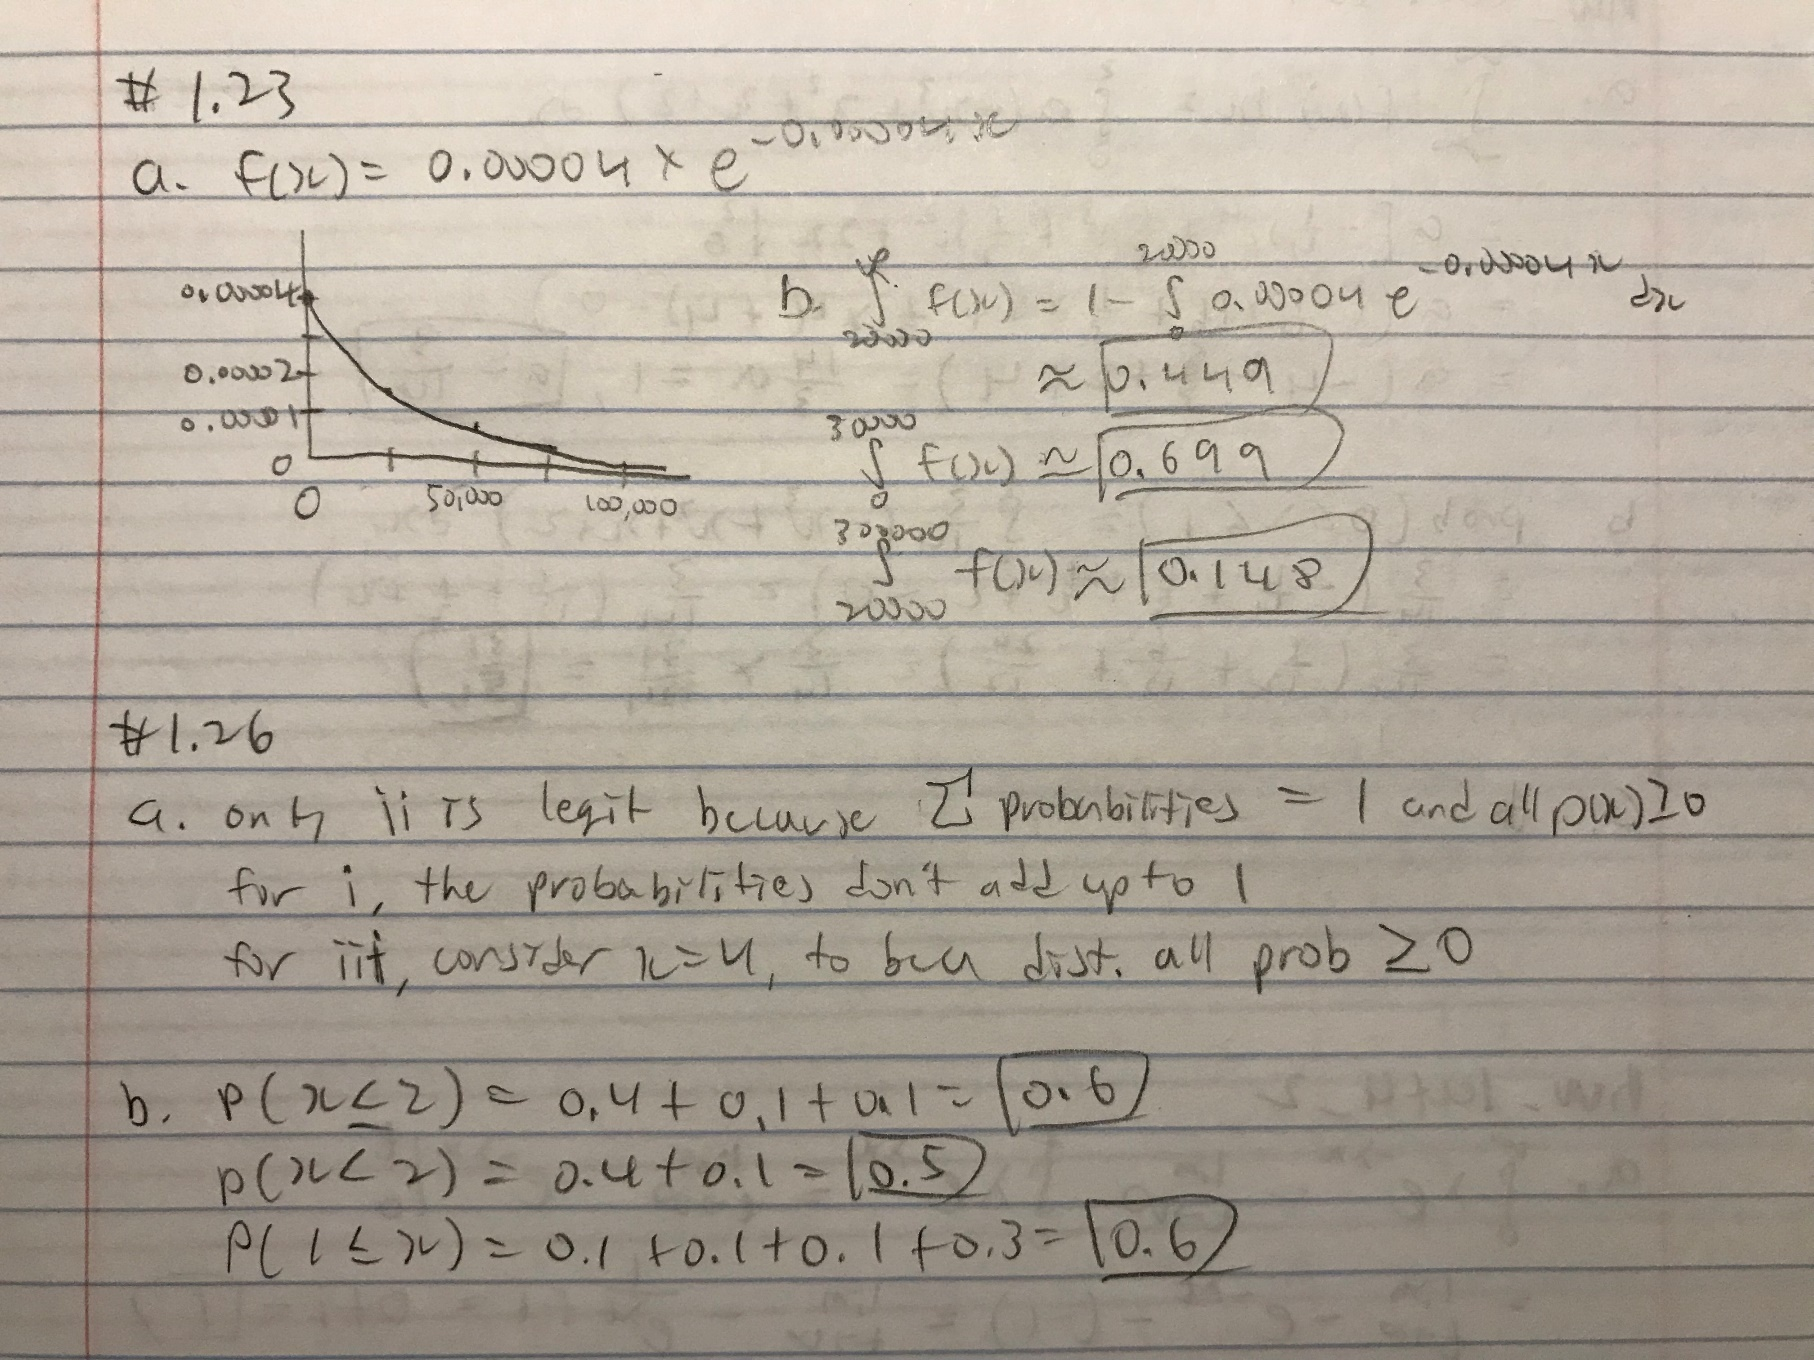 # 1.23
a. f(x) = 0.00004 × e^-0.00004x
0.00004
0.00002
0.00001
0
0 50,000 100,000
b. ∫_20000^∞ f(x) = 1 - ∫_0^20000 0.00004 e^-0.00004x dx
≈ 0.449
∫_0^30000 f(x) ≈ 0.699
∫_20000^30000 f(x) ≈ 0.148
#1.26
a. only ii is legit because Σ probabilities = 1 and all p(x) ≥ 0
for i, the probabilities don't add up to 1
for iii, consider x=4, to be a dist. all prob ≥ 0
b. P(x ≤ 2) = 0.4 + 0.1 + 0.1 = 0.6
p(x < 2) = 0.4 + 0.1 = 0.5
P(1 ≤ x) = 0.1 + 0.1 + 0.1 + 0.3 = 0.6